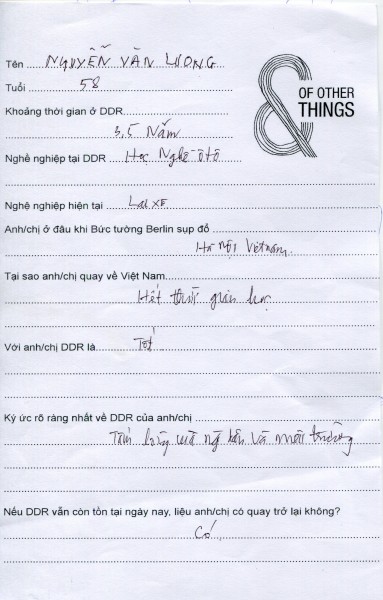 Tên NGUYỄN VĂN LUONG
Tuổi 58
& OF OTHER
THINGS
Khoảng thời gian ở DDR
3,5 Năm
Nghề nghiệp tại DDR Học Nghề ôtô
Nghệ nghiệp hiện tại Lái xe
Anh/chị ở đâu khi Bức tường Berlin sụp đổ
Hà nội Việtnam.
Tại sao anh/chị quay về Việt Nam
Hết thời gian học
Với anh/chị DDR là Tốt
Ký ức rõ ràng nhất về DDR của anh/chị
và môi trường
Nếu DDR vẫn còn tồn tại ngày nay, liệu anh/chị có quay trở lại không?
Có.